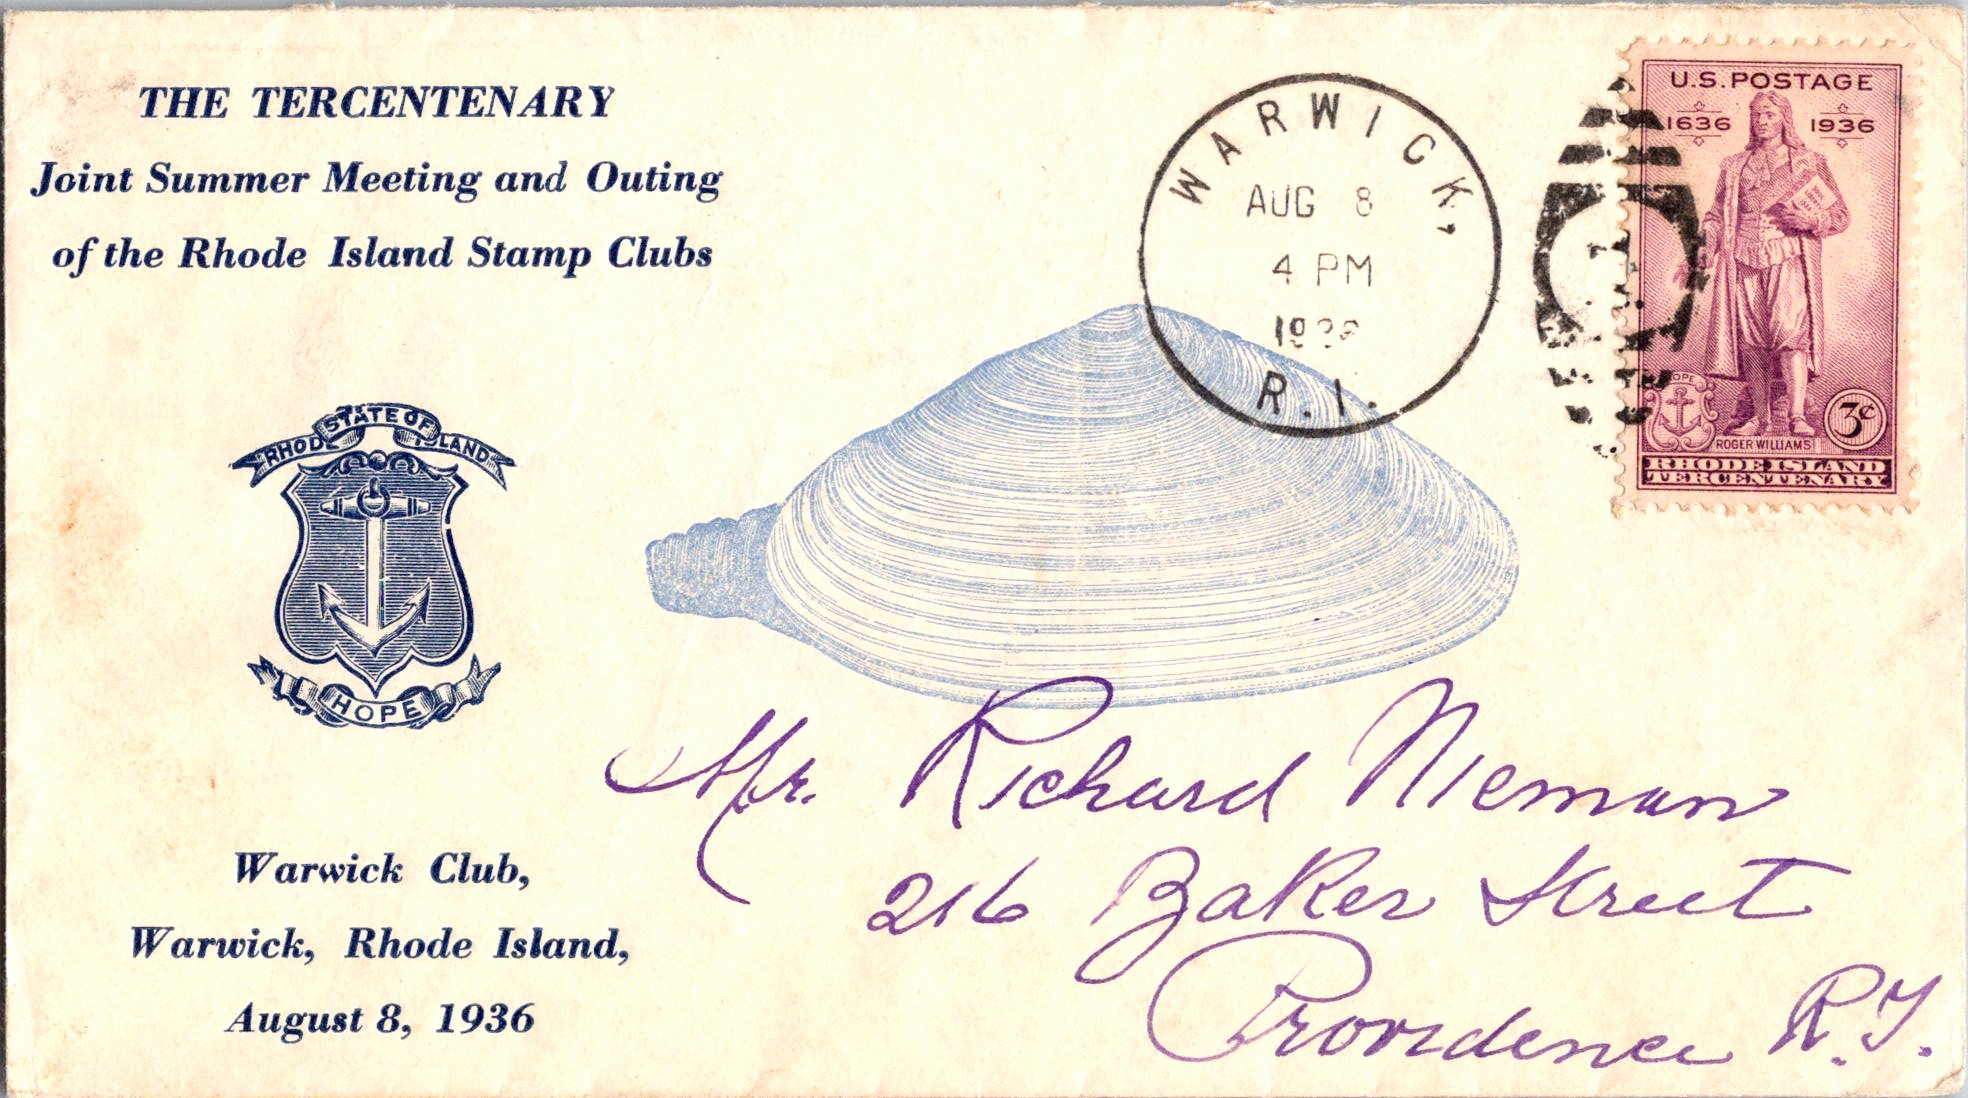 THE TERCENTENARY
Joint Summer Meeting and Outing
of the Rhode Island Stamp Clubs
STATE OF
RHODE ISLAND
HOPE
Warwick Club,
Warwick, Rhode Island,
August 8, 1936
WARWICK,
AUG 8
4 PM
R.I.
U.S. POSTAGE
1636 1936
HOPE
3c
ROGER WILLIAMS
RHODE ISLAND
TERCENTENARY
Mr. Richard Nieman
216 Baker Street
Providence R.I.